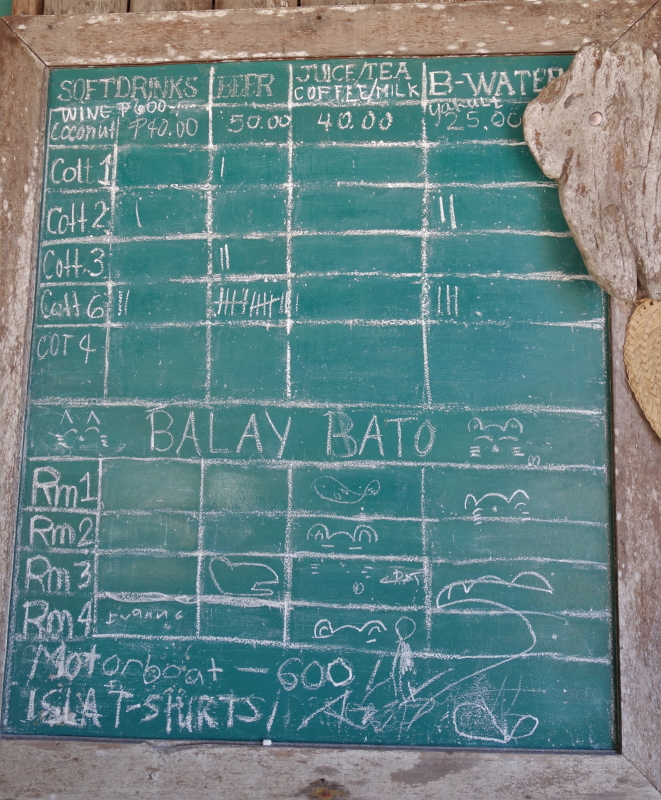 SOFTDRINKS BEER JUICE/TEA COFFEE/MILK B-WATER
WINE ₱600.- yakult
Coconut ₱40.00 50.00 40.00 25.00
Cott 1 |
Cott 2 | ||
Cott.3 ||
Cott 6 || |||
COT 4
BALAY BATO
Rm1
Rm2
Rm3
Rm4
Motorboat - 600
ISLA T-SHIRTS